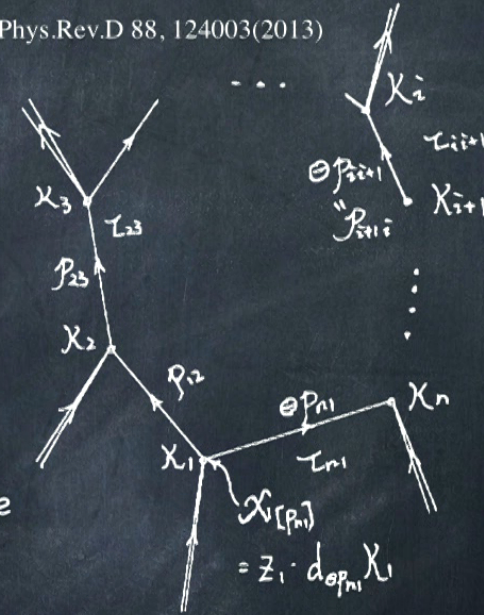 Phys.Rev.D 88, 124003(2013)
...
K_i
τ_{ii+1}
⊖p_{ii+1}
"
p_{i+1i}
K_{i+1}
K_3
τ_{23}
p_{23}
K_2
p_{12}
⊖p_{n1}
K_n
K_1
τ_{n1}
e
x_{1[p_{n1}]}
= z_1 · d_{⊖p_{n1}} K_1